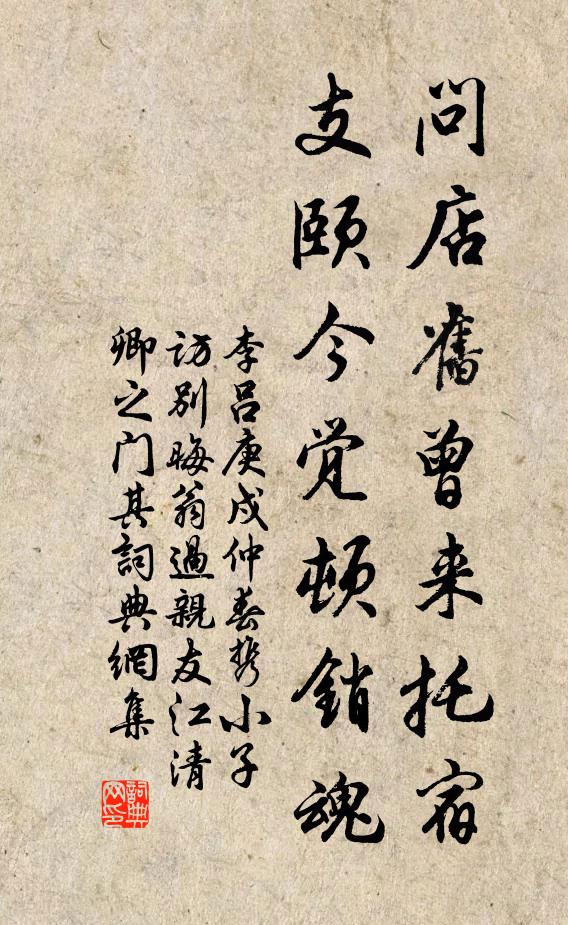 问店旧曾来托宿
支颐今觉顿销魂
李吕庚戌仲春携小子
访别晦翁过亲友江清
卿之门其词典网集
词典网印